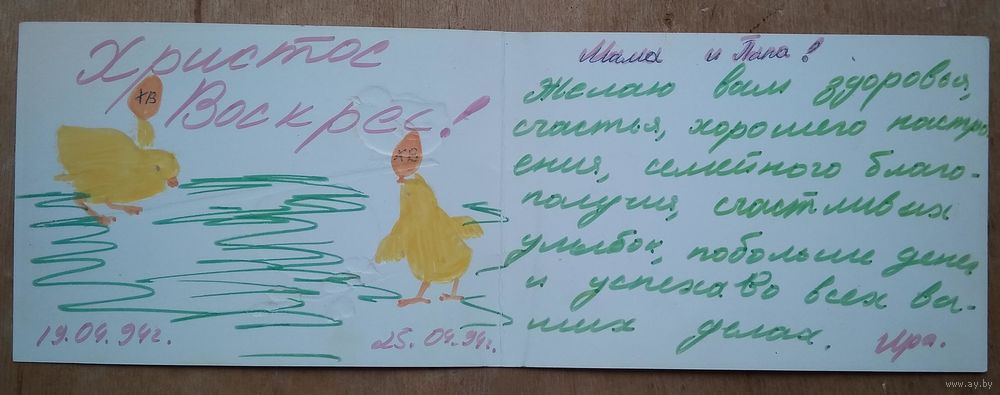 Христос
Воскрес!
ХВ
ХВ
19.04.94г.
25.04.94г.
Мама и Папа!
Желаю вам здоровья,
счастья, хорошего настро
ения, семейного благо-
получия, счастливых
улыбок, побольше денег
и успеха во всех ва-
ших делах.
Ира.
www.ay.by